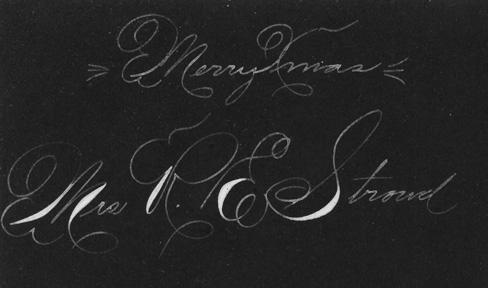 Merry Xmas
Mrs R. E Stroud